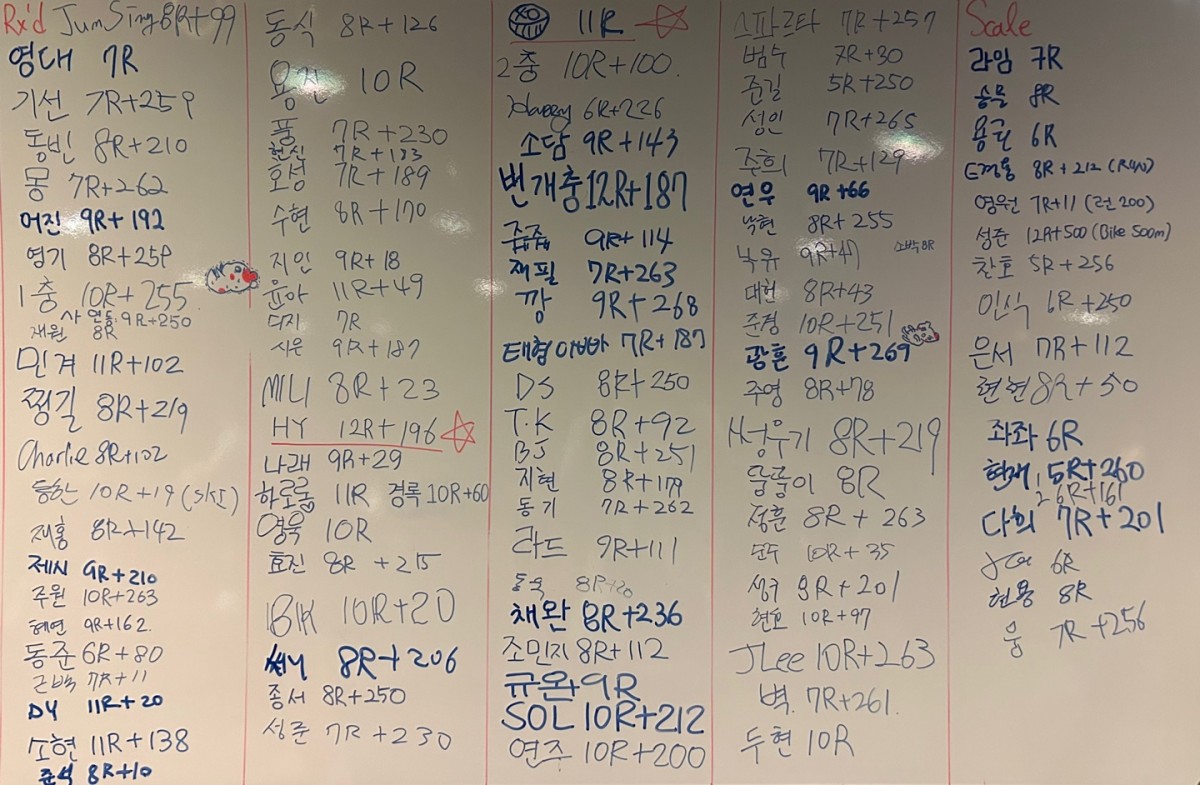 Rx'd JumSing 8R+99
영대 7R
기선 7R+259
동빈 8R+210
몽 7R+262
어진 9R+192
영기 8R+259
1층 10R+255
사 열동: 9R+250
재원 8R
민겨 11R+102
찡길 8R+219
Charlie 8R+102
동한 10R+19 (SKI)
재홍 8R+142
제시 9R+210
주원 10R+263
혜연 9R+162
동준 6R+80
근백 7R+11
DY 11R+20
소현 11R+138
준석 8R+10
동식 8R+126
용진 10R
풍 7R+230
현진 7R+183
호성 7R+189
수현 8R+170
지인 9R+18
윤아 11R+49
디지 7R
시은 9R+187
MILI 8R+23
HY 12R+196
나래 9R+29
하로롱 11R 경록 10R+60
영욱 10R
효진 8R+215
IBK 10R+20
8R+206
종서 8R+250
성준 7R+230
XO 11R
2층 10R+100
Harry 6R+226
소담 9R+143
번개충 12R+187
쥬쥬 9R+114
재필 7R+263
깡 9R+268
태형이빠빠 7R+187
DS 8R+250
T.K 8R+92
BJ 8R+251
지현 8R+179
동기 7R+262
라드 9R+111
동욱 8R+20
채완 8R+236
조민지 8R+112
규완 9R
SOL 10R+212
연주 10R+200
스파르타 7R+257
범수 7R+30
준길 5R+250
성인 7R+265
주희 7R+129
연우 9R+66
낙현 8R+255
낙유 9R+41 소박 8R
대현 8R+43
준경 10R+251
광훈 9R+269
주영 8R+78
서우기 8R+219
뚭뚱이 8R
정훈 8R+263
만두 10R+35
성규 9R+201
현호 10R+97
JLee 10R+263
벽. 7R+261
두현 10R
Scale
라임 7R
승물 8R
용근 6R
E경용 8R+212 (R40)
영원 7R+11 (런200)
성준 12R+500 (Bike 500m)
찬호 5R+256
인식 6R+250
은서 7R+112
련현 8R+50
좌좌 6R
현재 1. 5R+260
2. 6R+161
다희 7R+201
6R
현용 8R
웅 7R+256